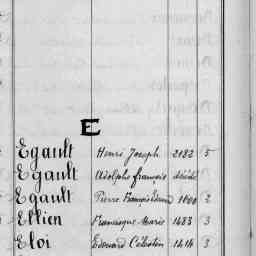 E
Egault Henri Joseph 2182 5
Egault Adolphe françois décédé
Egault Pierre François 1600 2
Ellien Francisque Marie 1483 3
Eloi Edouard Célestin 1414 3